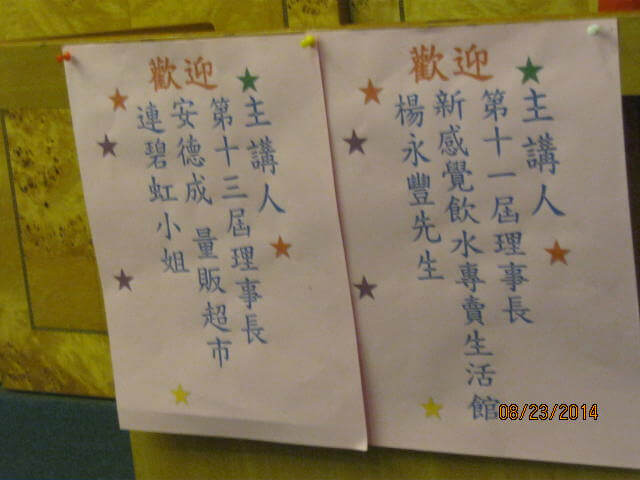 歡迎
主講人
第十三屆理事長
安德成 量販超市
連碧虹小姐
歡迎
主講人
第十一屆理事長
新感覺飲水專賣生活館
楊永豐先生
08/23/2014